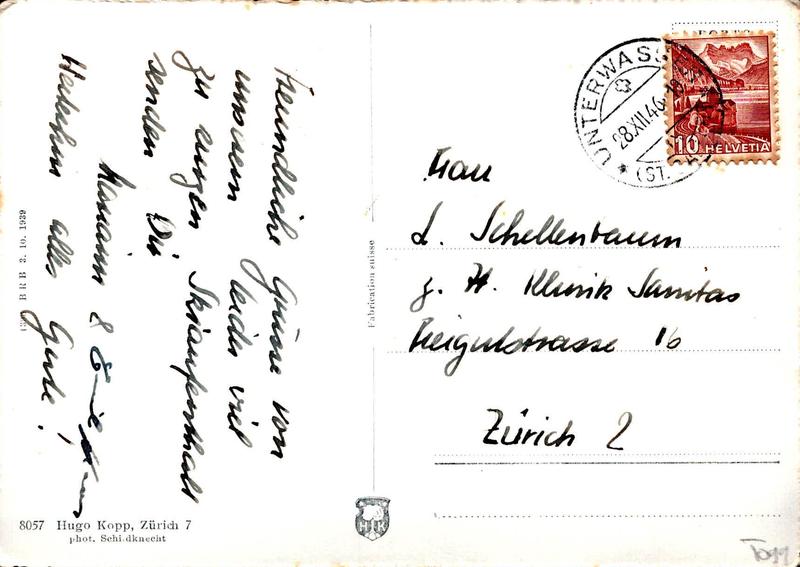 Freundliche Grüsse von
unserem leider viel
zu kurzen Skiaufenthalt
senden Dir
& 
Weiterhin alles Gute!
Frau
L. Schellenbaum
z. H. Klinik Sanitas
Freigutstrasse 16
Zürich 2
UNTERWASSER
28.XII.46
(ST.
10 HELVETIA
Fabrication suisse
BRB 3. 10. 1939
8057 Hugo Kopp, Zürich 7
phot. Schildknecht
HKZ
Togg